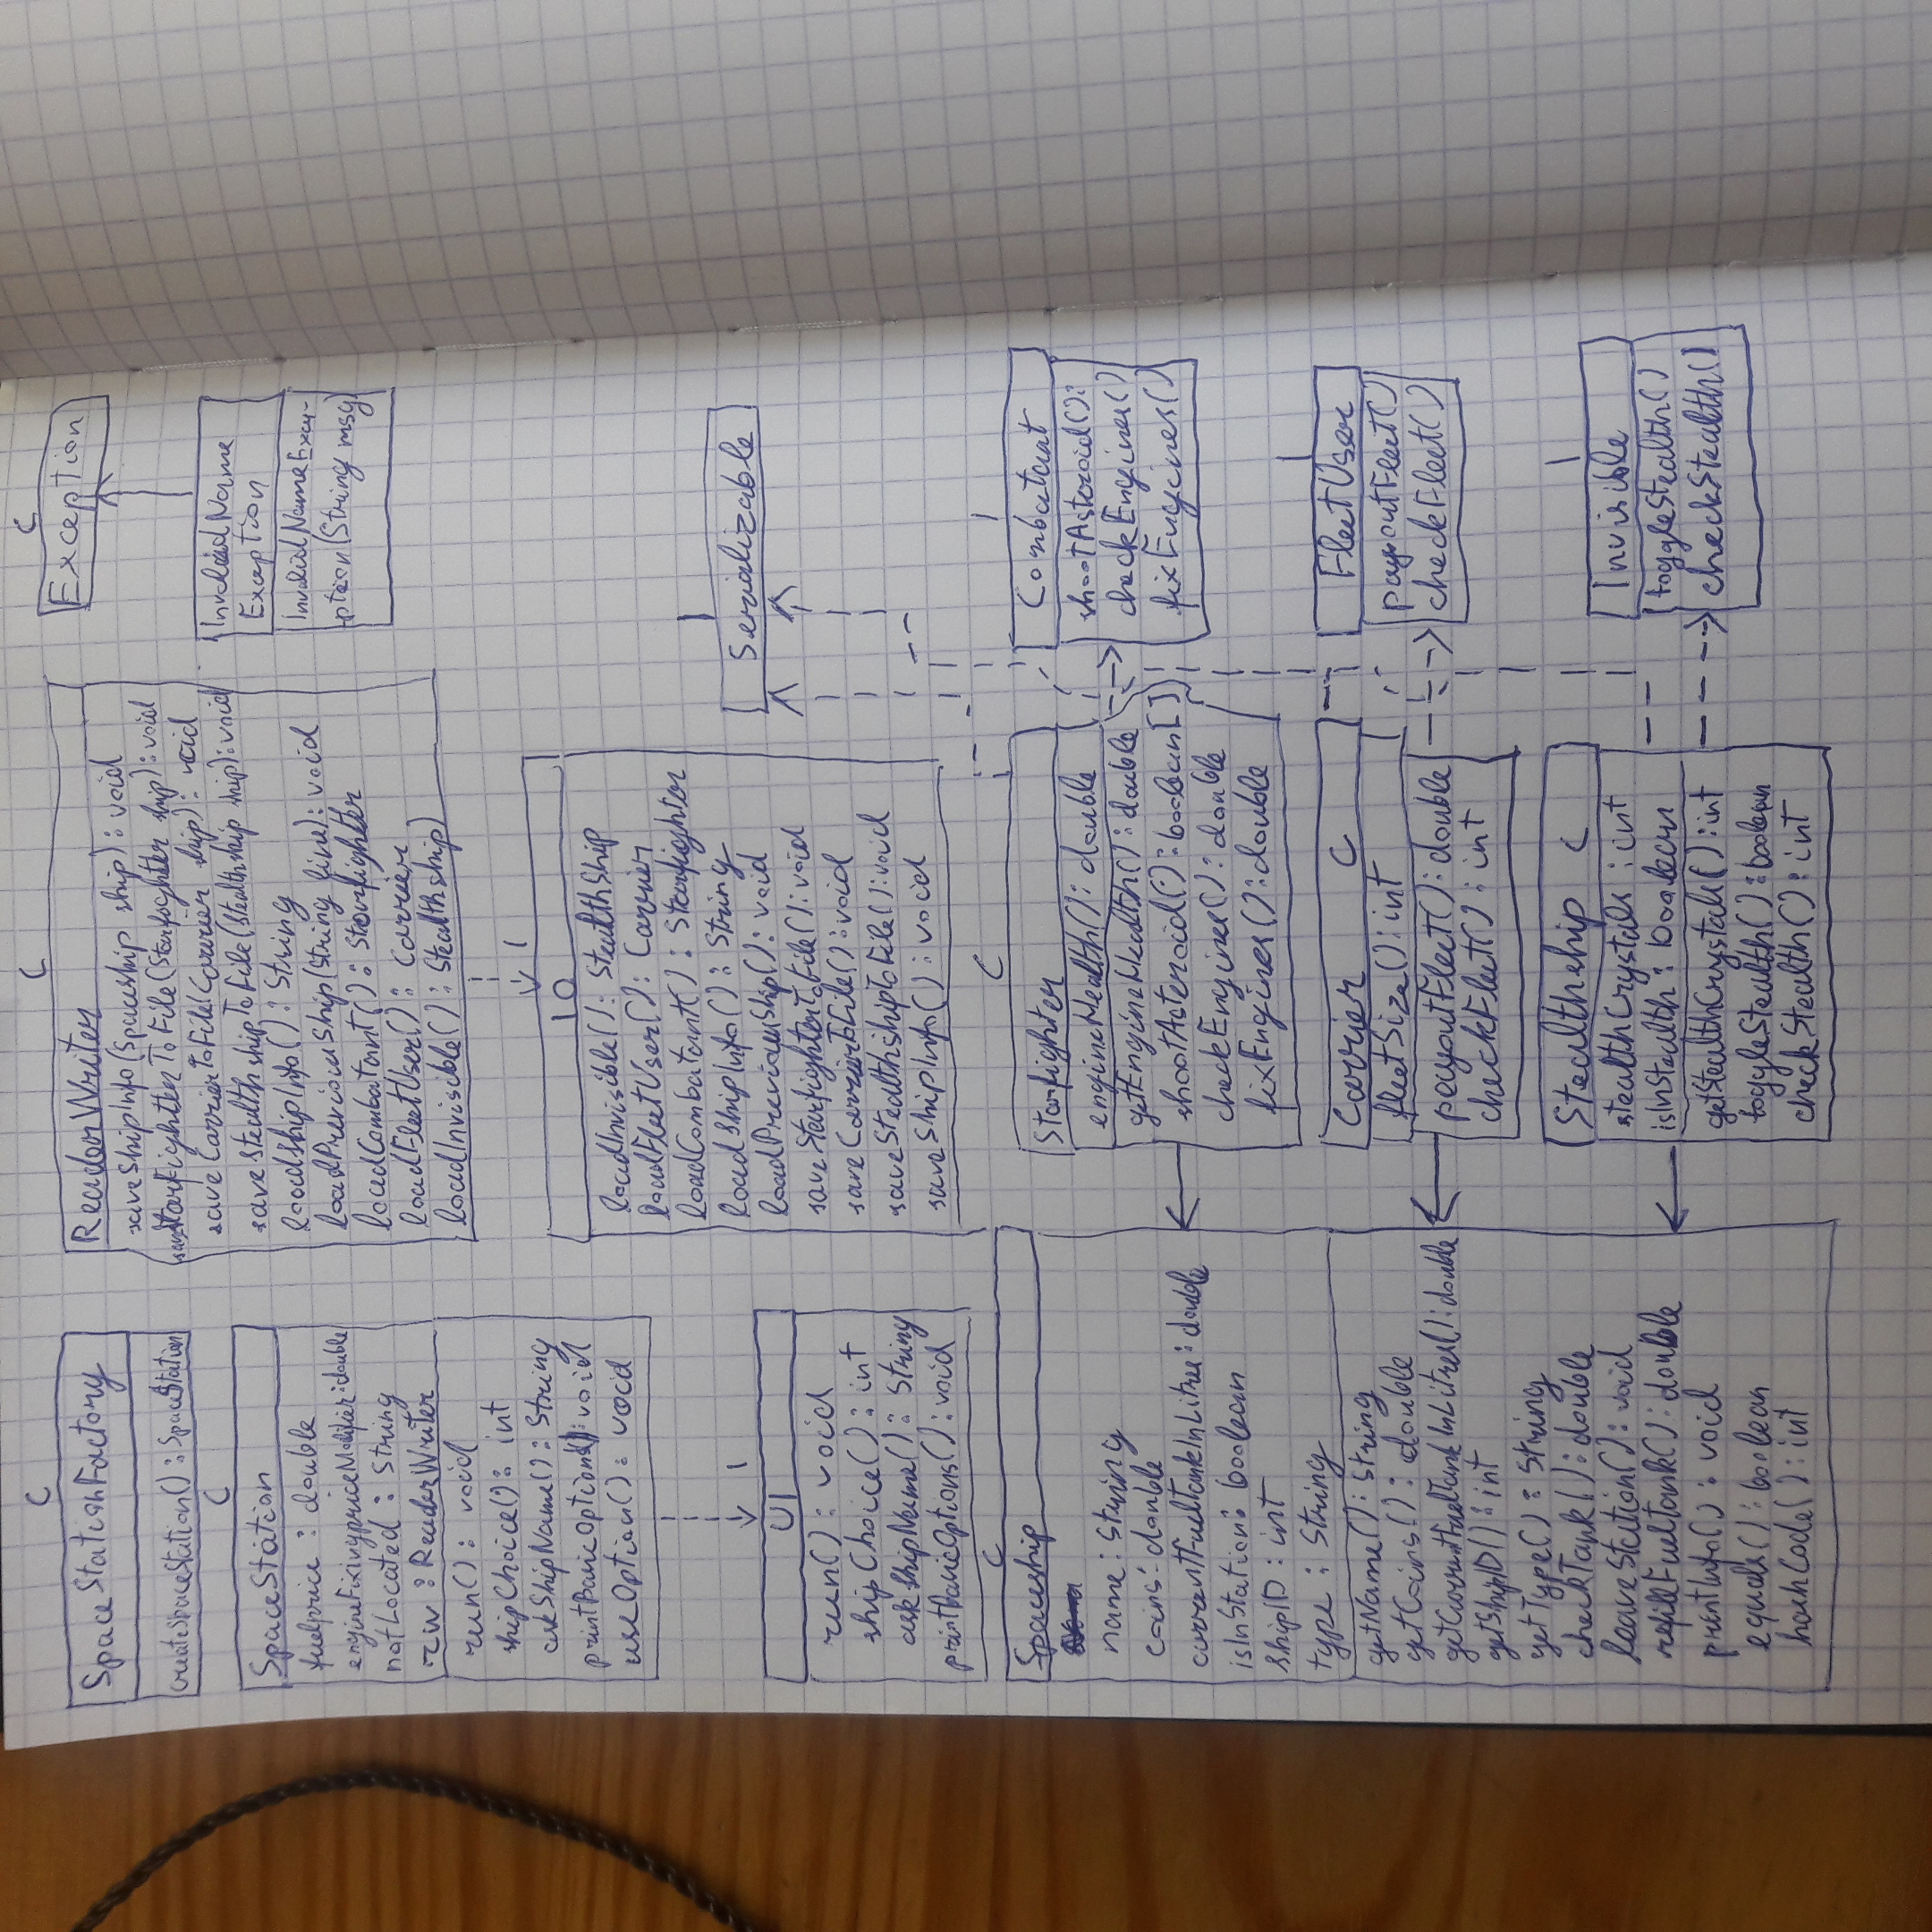 C
SpaceStationFactory
createSpaceStation() : SpaceStation
C
SpaceStation
fuelprice : double
engineFixingpriceModifier : double
notLocated : String
rw : ReaderWriter
run() : void
shipChoice() : int
askShipName() : String
printBasicOptions() : void
useOption() : void
I
UI
run() : void
shipChoice() : int
askShipName() : String
printBasicOptions() : void
C
Spaceship
name : String
coins : double
currentFuelTankInLitres : double
isInStation : boolean
shipID : int
type : String
getName() : String
getCoins() : double
getCurrentFuelTankInLitres() : double
getShipID() : int
getType() : String
checkTank() : double
leaveStation() : void
refillFuelTank() : double
printInfo() : void
equals() : boolean
hashCode() : int
C
ReaderWriter
saveShipInfo(Spaceship ship) : void
saveStarfighterToFile(Starfighter ship) : void
saveCarrierToFile(Carrier ship) : void
saveStealthshipToFile(Stealthship ship) : void
loadShipInfo() : String
loadPreviousShip(String line) : void
loadCombatant() : Starfighter
loadFleetUser() : Carrier
loadInvisible() : Stealthship)
I
IO
loadInvisible() : StealthShip
loadFleetUser() : Carrier
loadCombatant() : Starfighter
loadShipInfo() : String
loadPreviousShip() : void
saveStarfighterToFile() : void
saveCarrierToFile() : void
saveStealthshipToFile() : void
saveShipInfo() : void
C
Starfighter
engineHealth() : double
getEngineHealth() : double
shootAsteroid() : boolean[]
checkEngines() : double
fixEngines() : double
Carrier C
fleetSize() : int
payoutFleet() : double
checkFleet() : int
Stealthship C
stealthCrystals : int
isInStealth : boolean
getStealthCrystals() : int
toggleStealth() : boolean
checkStealth() : int
C
Exception
InvalidName
Exception
InvalidNameExce-
ption(String msg)
I
Serializable
I
Combatant
shootAsteroid() :
checkEngines()
fixEngines()
I
FleetUser
payoutFleet()
checkFleet()
I
Invisible
toggleStealth()
checkStealth()